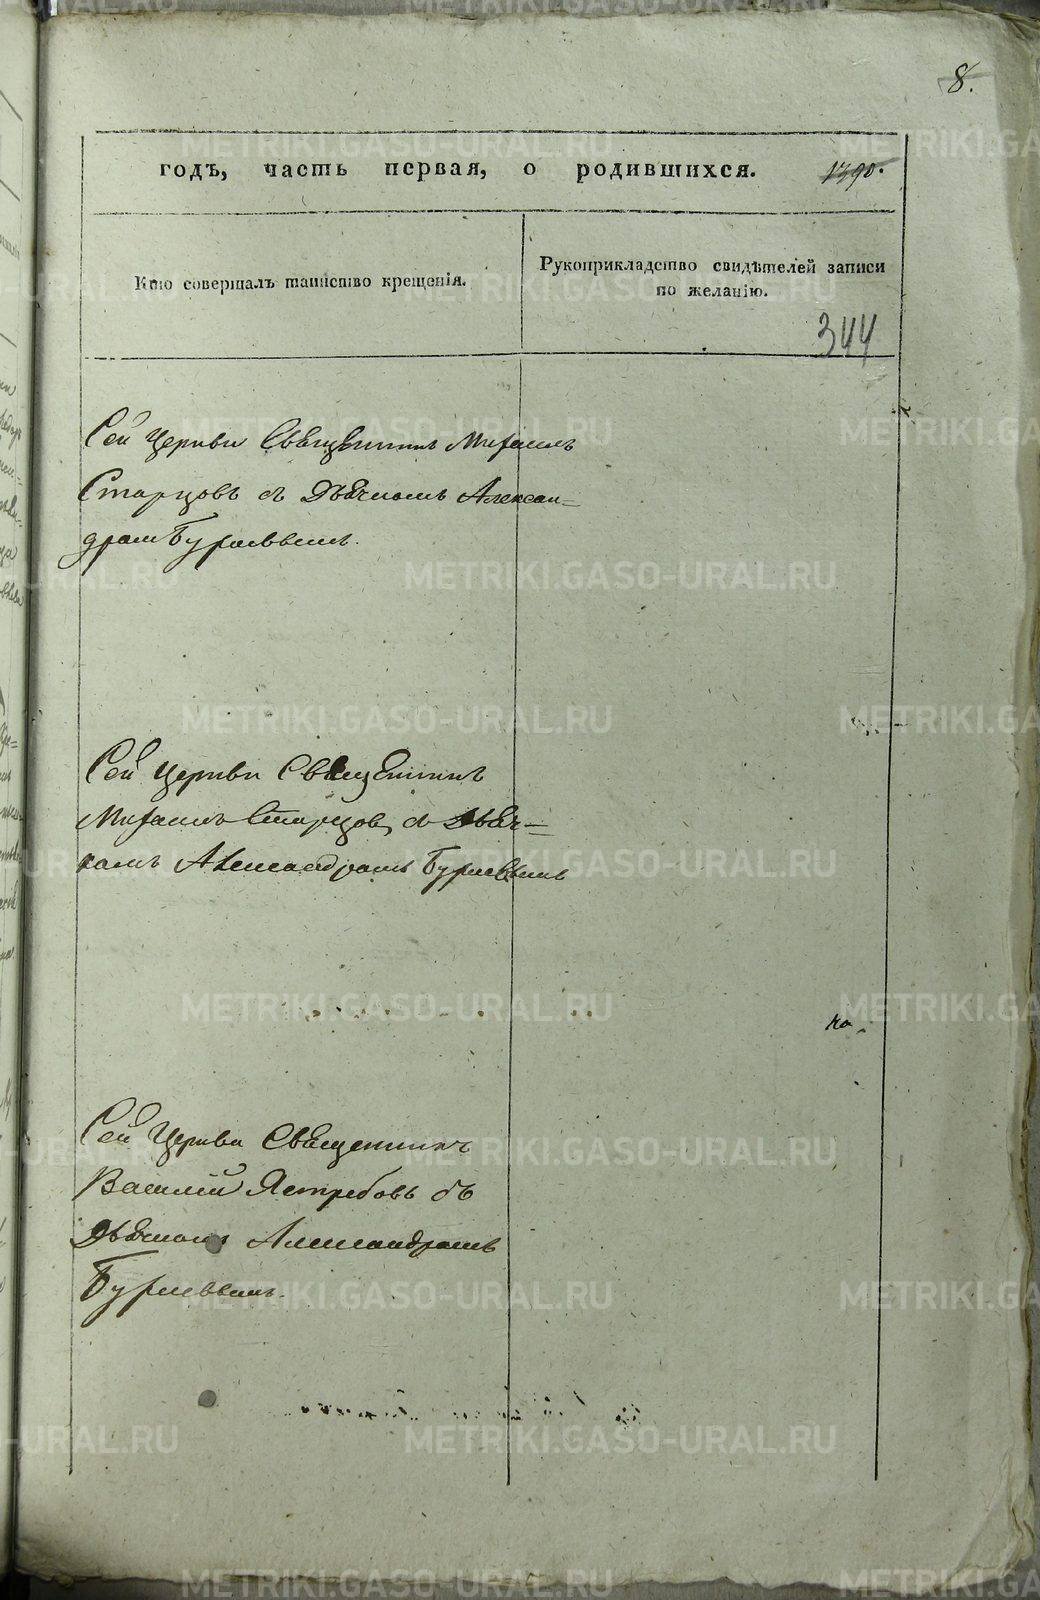 8.
годъ, часть первая, о родившихся. 1390.
Кто совершалъ таинство крещенія.
Рукоприкладство свидѣтелей записи
по желанію.
344
Сей Церкви Священникъ Михаилъ
Старцовъ съ Дьячкомъ Алексан=
дромъ
Сей Церкви Священникъ
Михаилъ Старцовъ съ Дьяч=
комъ Александромъ
Сей Церкви Священникъ
Василій Ястребовъ съ
Дьячкомъ Александромъ
METRIKI.GASO-URAL.RU